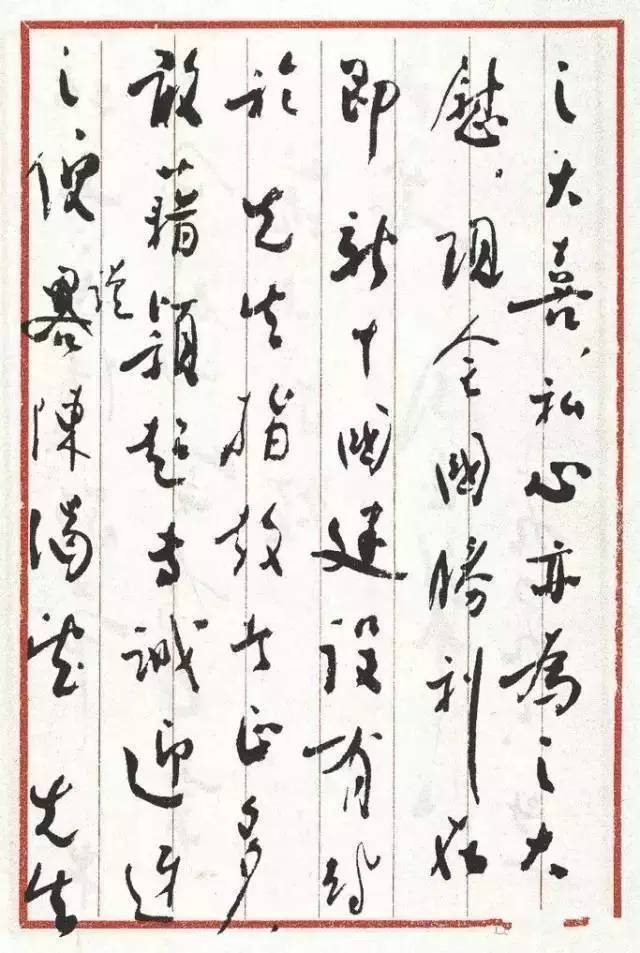 之大喜，私心亦為之大
慰。現全國勝利在
即新中國建設有待
於先生指教者正多，
敢藉穎超專誠迎迓
之便謹畧陳渴望 先生